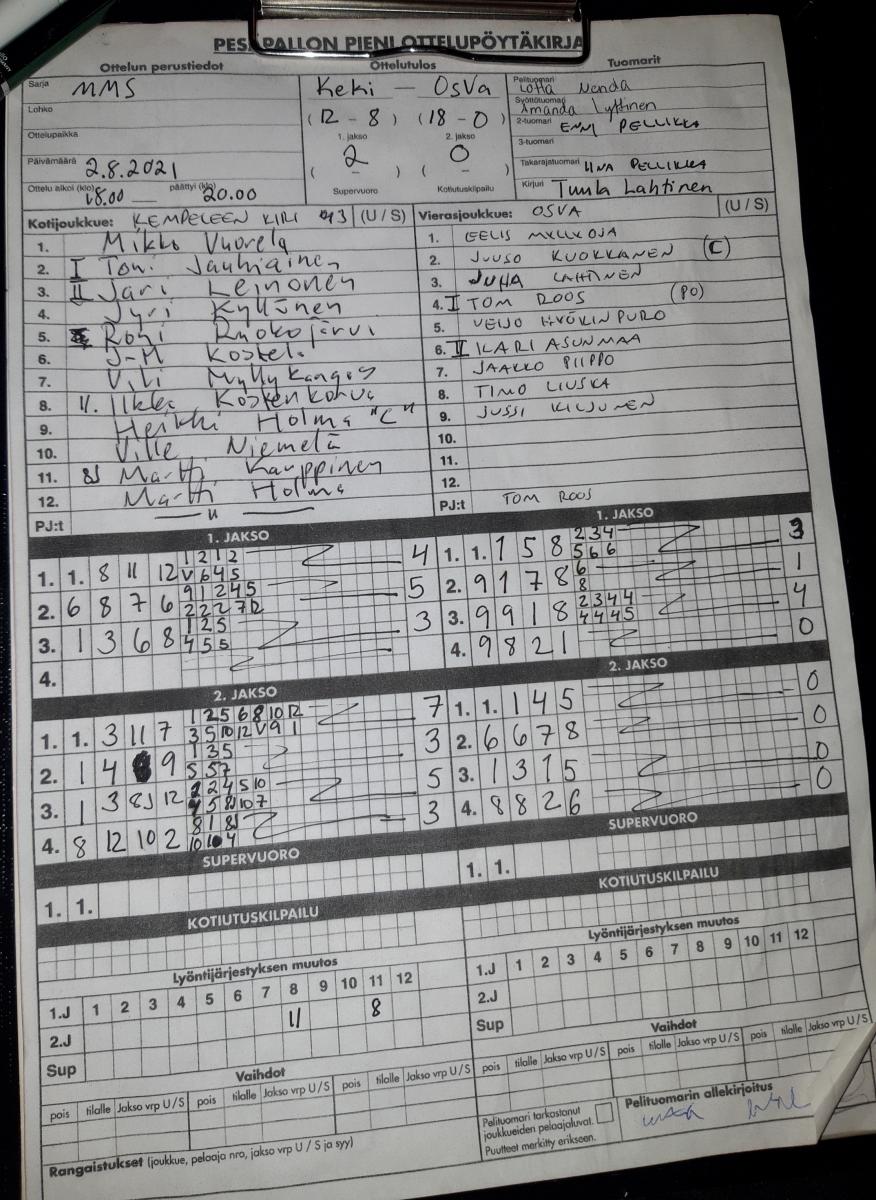 PESÄPALLON PIENI OTTELUPÖYTÄKIRJA
Ottelun perustiedot Ottelutulos Tuomarit
Sarja MMS
Lohko
Ottelupaikka
Päivämäärä 2.8.2021
Ottelu alkoi (klo) 18.00 päättyi (klo) 20.00
Keki – OsVa
(12 - 8) (18 - 0)
1. jakso 2. jakso
2 0
( - ) ( - )
Supervuoro Kotiutuskilpailu
Pelituomari Lotta Nenda
Syöttötuomari Amanda Lyttinen
2-tuomari ENNI PELLIKKA
3-tuomari
Takarajatuomari IINA PELLIKKA
Kirjuri Tuula Lahtinen
Kotijoukkue: KEMPELEEN KIRI (U / S)
1. Mikko Vuorela
2. I Tomi Jauhiainen
3. II Jari Leinonen
4. Jyri Kyllönen
5. Roni Ruokojärvi
6. J-M Koskela
7. Vili Myllykangas
8. 11. Ilkka Koskenkorva
9. Heikki Holma "C"
10. Ville Niemelä
11. 8J Martti Kauppinen
12. Martti Holma
PJ:t — " —
Vierasjoukkue: OSVA (U / S)
1. EELIS MYLLYOJA
2. JUUSO KUOKKANEN (C)
3. JUHA LAHTINEN
4. I TOM ROOS (PO)
5. VEIJO HYÖKINPURO
6. II KARI ASUNMAA
7. JAAKKO PIIPPO
8. TIMO LIUSKA
9. JUSSI KILJUNEN
10.
11.
12.
PJ:t TOM ROOS
1. JAKSO
1. 1. 8 11 12 1 2 1 2 4
V 6 4 5
2. 6 8 7 6 9 1 2 4 5 5
2 2 2 7 12
3. 1 3 6 8 1 2 5 3
4 5 5
4.
1. JAKSO
1. 1. 1 5 8 2 3 4 3
5 6 6
2. 9 1 7 8 6 1
8
3. 9 9 1 8 2 3 4 4 4
4 4 4 5
4. 9 8 2 1 0
2. JAKSO
1. 1. 3 11 7 1 2 5 6 8 10 12 7
3 5 10 12 V 9 1
2. 1 4 9 1 3 5 3
5 5 7
3. 1 3 8J 12 2 2 4 5 10 5
5 8J 10 7
4. 8 12 10 2 8 1 8J 3
10 10 4
2. JAKSO
1. 1. 1 4 5 0
2. 6 6 7 8 0
3. 1 3 1 5 0
4. 8 8 2 6 0
SUPERVUORO
1. 1.
SUPERVUORO
1. 1.
KOTIUTUSKILPAILU
KOTIUTUSKILPAILU
Lyöntijärjestyksen muutos
1.J 1 2 3 4 5 6 7 8 9 10 11 12
2.J 11 8
Sup
Lyöntijärjestyksen muutos
1.J 1 2 3 4 5 6 7 8 9 10 11 12
2.J
Sup
Vaihdot
pois tilalle Jakso vrp U / S pois tilalle Jakso vrp U / S pois tilalle Jakso vrp U / S
Vaihdot
pois tilalle Jakso vrp U / S pois tilalle Jakso vrp U / S pois tilalle Jakso vrp U / S
Rangaistukset (joukkue, pelaaja nro, jakso vrp U / S ja syy)
Pelituomari tarkastanut
joukkueiden pelaajaluvat.
Puutteet merkitty erikseen.
Pelituomarin allekirjoitus